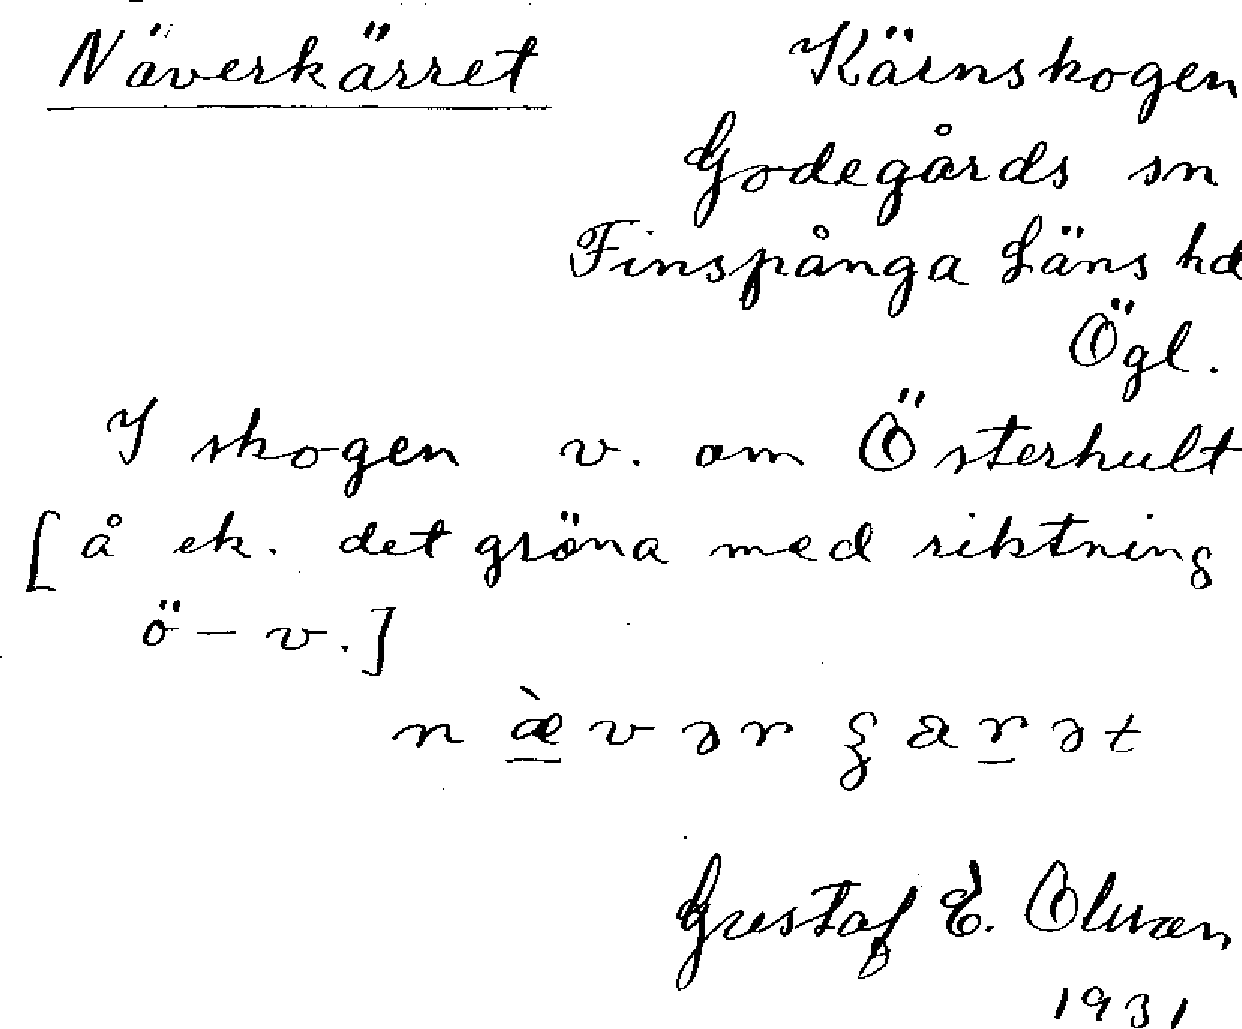 Näverkärret Kärnskogen
Godegårds sn
Finspånga Läns hd
Ögl.
I skogen v. om Österhult
[å ek. det gröna med riktning
ö – v.]
Gustaf E. Olsson
1931